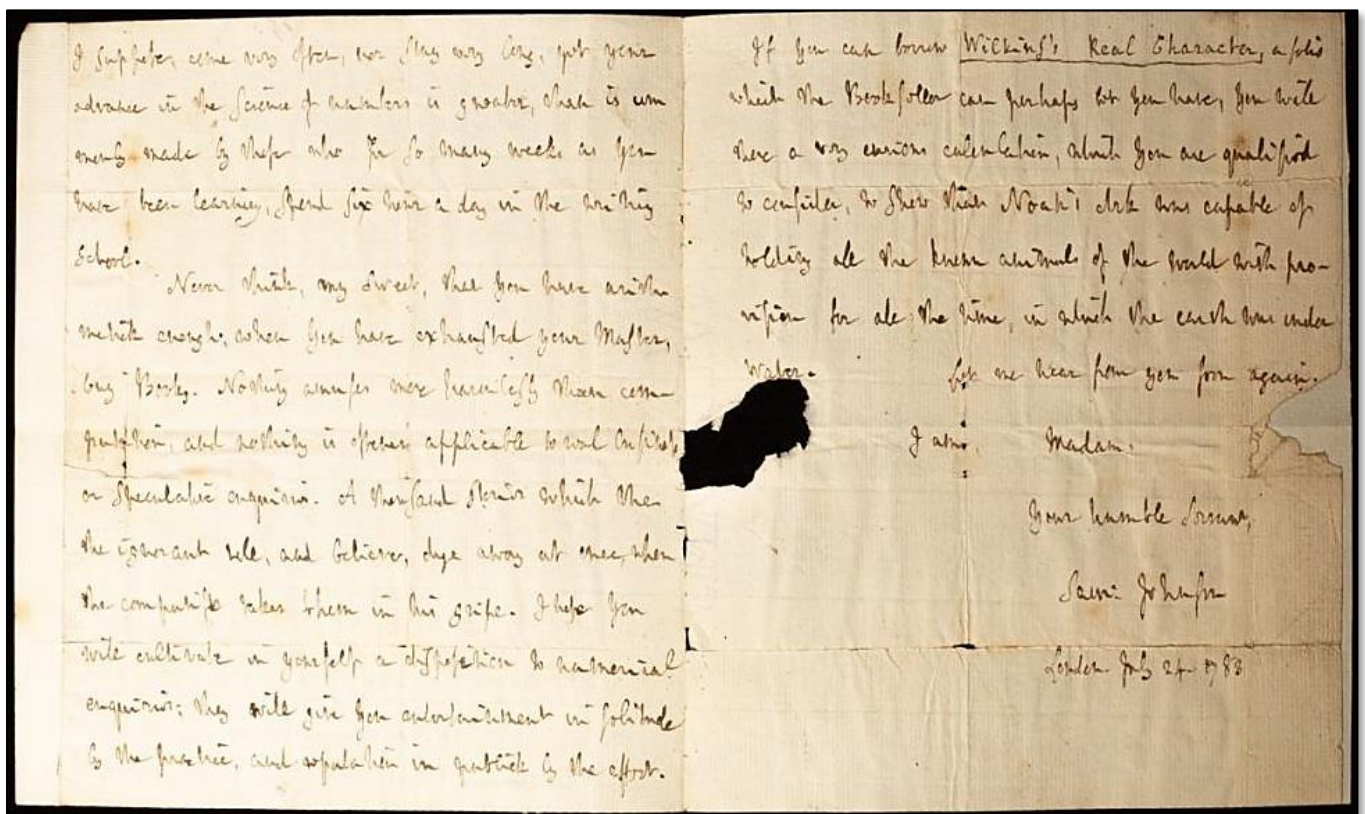 I suppose, come very often, nor stay very long, yet your
advance in the science of numbers is greater, than is com
monly made by those who for so many weeks as you
have been learning, spend six hours a day in the writing
school.
Never think, my Sweet, that you have arith
metick enough; when you have exhausted your Master,
buy Books. Nothing amuses more harmlessly than com-
putation, and nothing is oftener applicable to real business
or speculative enquiries. A thousand stories which the
the ignorant tell, and believe, dye away at once, when
the computist takes them in his gripe. I hope you
will cultivate in yourself a disposition to numerical
enquiries; they will give you entertainment in solitude
by the practice, and reputation in publick by the effect.
If you can borrow Wilkins's Real Character, a folio
which the Bookseller can perhaps let you have, you will
have a very curious calculation, which you are qualified
to consider, to shew that Noah's Ark was capable of
holding all the known animals of the world with pro-
vision for all the time, in which the earth was under
water. Let me hear from you soon again.
I am, Madam,
Your humble Servant,
Sam: Johnson
London July 24 1783